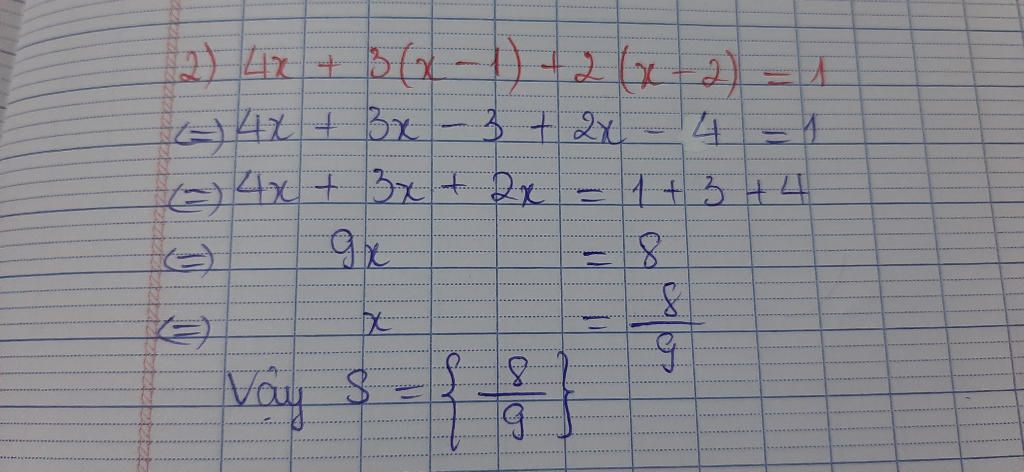 2) 4x + 3(x - 1) + 2(x - 2) = 1
(=) 4x + 3x - 3 + 2x - 4 = 1
(=) 4x + 3x + 2x = 1 + 3 + 4
(=) 9x = 8
(=) x = 8/9
Vậy S = { 8/9 }